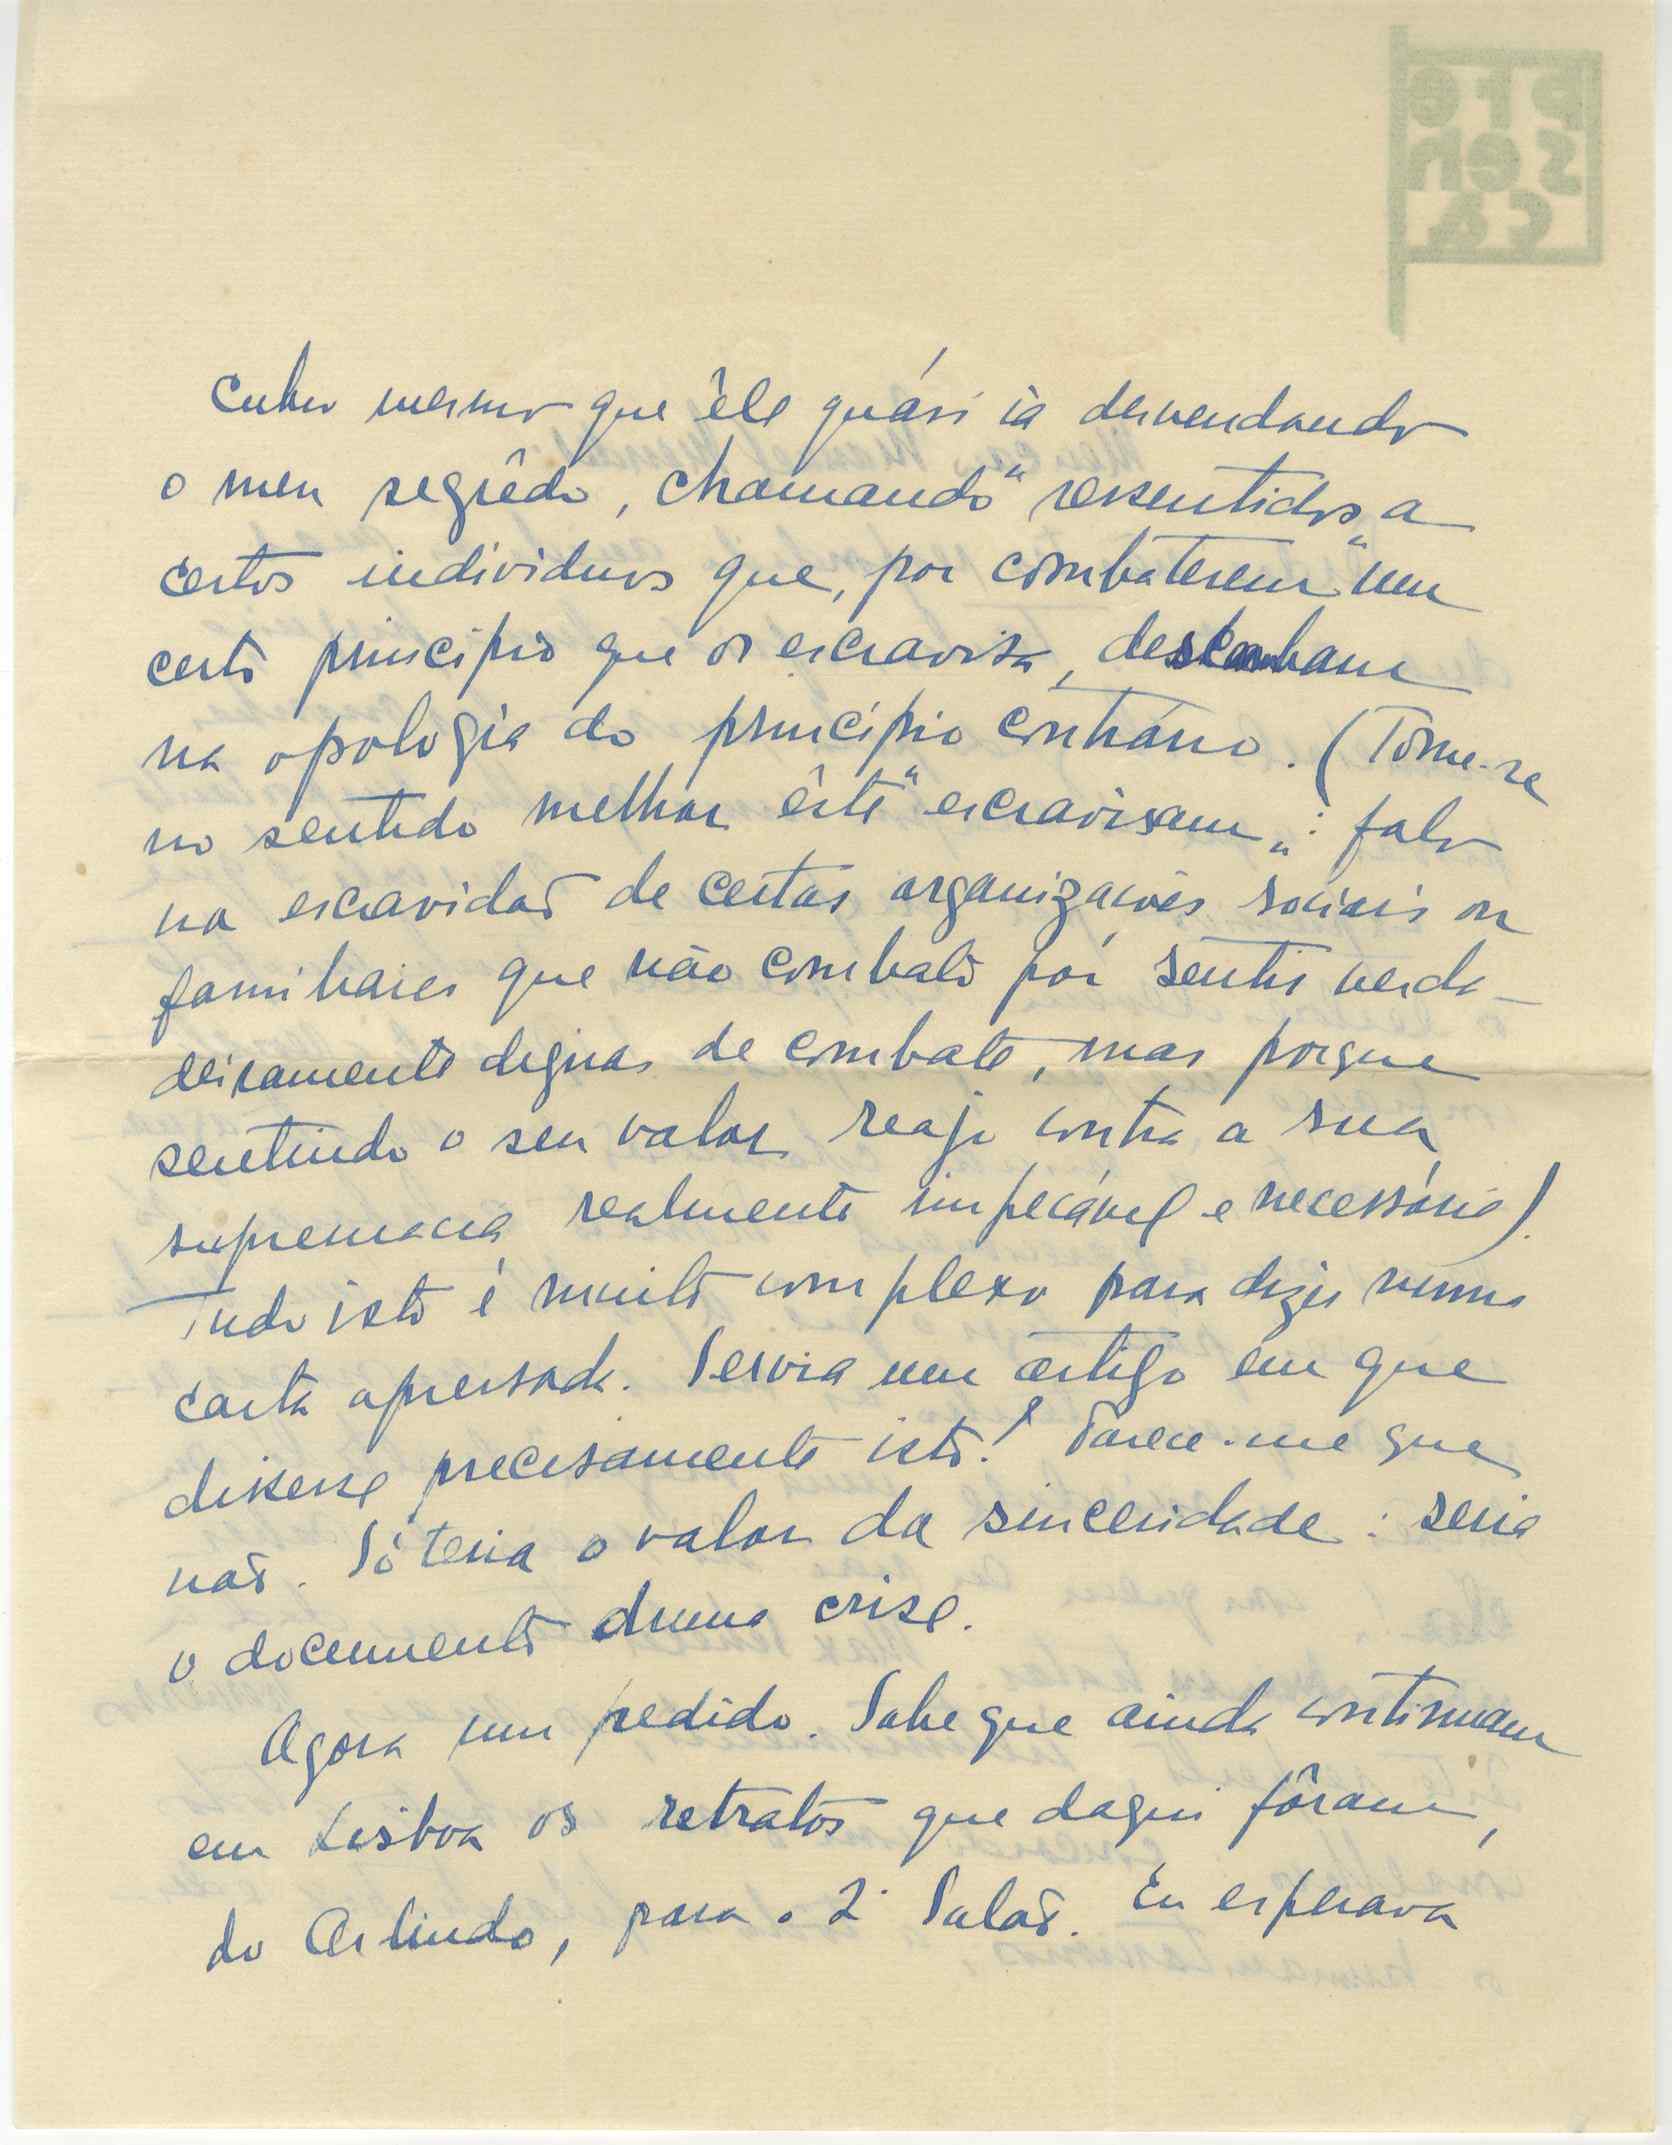 presença
mesmo que êle quási ia desvendando
o meu segrêdo, chamando "ressentidos" a
certos individuos que, por combaterem um
certo principio que os escravisa, descambam
na apologia do principio contrário. (Tome-se
no sentido melhor êste "escravisam": falo
na escravidão de certas organizações sociais ou
familiares que não combato por sentir verda-
deiramente dignas de combate, mas porque
sentindo o seu valor reajo contra a sua
supremacia realmente impecável e necessária).
Tudo isto é muito complexo para dizer numa
carta apressada. Servia um artigo em que
dissesse precisamente isto? Parece-me que
não. Só teria o valor da sinceridade: seria
o documento duma crise.
Agora um pedido. Sabe que ainda continuam
em Lisboa os retratos que daqui fôram,
do Arlindo, para o 2º Salão. Eu esperava